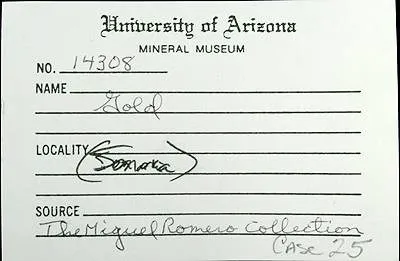 University of Arizona
MINERAL MUSEUM
NO. 14308
NAME
Gold
LOCALITY
SOURCE
The Miguel Romero Collection
CASE 25